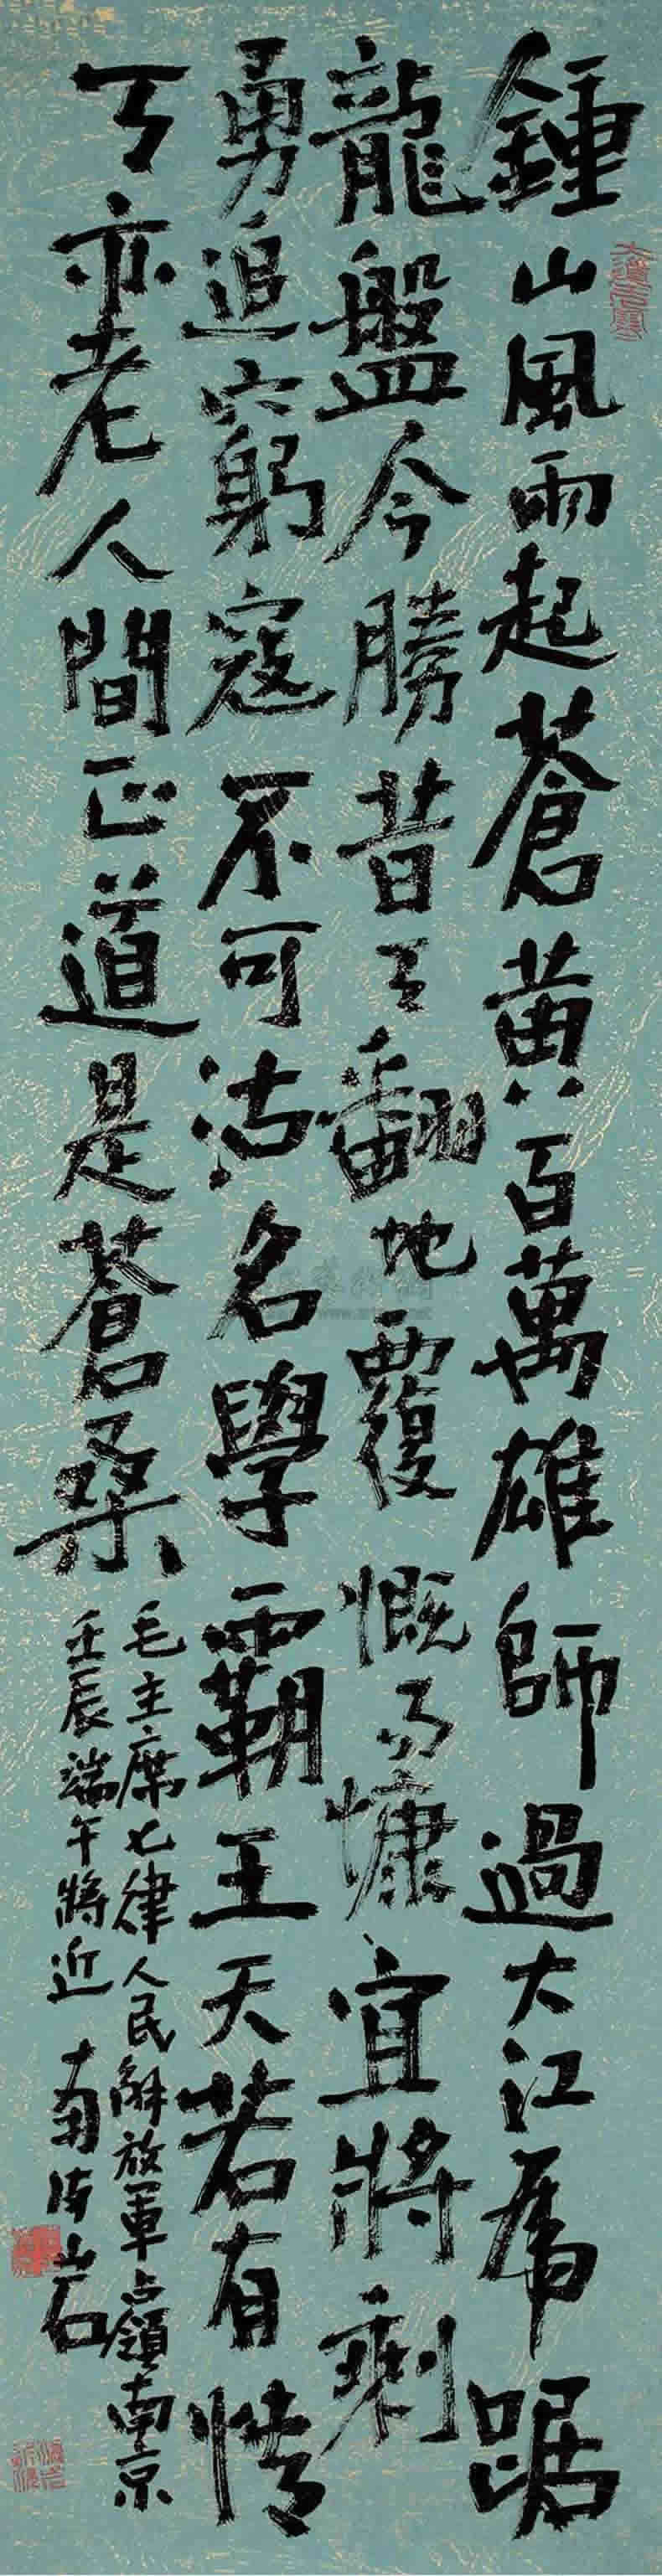 鍾山風雨起蒼黃百萬雄師過大江虎踞
龍盤今勝昔天翻地覆慨而慷宜將剩
勇追窮寇不可沽名學霸王天若有情
天亦老人間正道是蒼桑
毛主席七律人民解放軍占領南京
壬辰端午將近 南海山岩